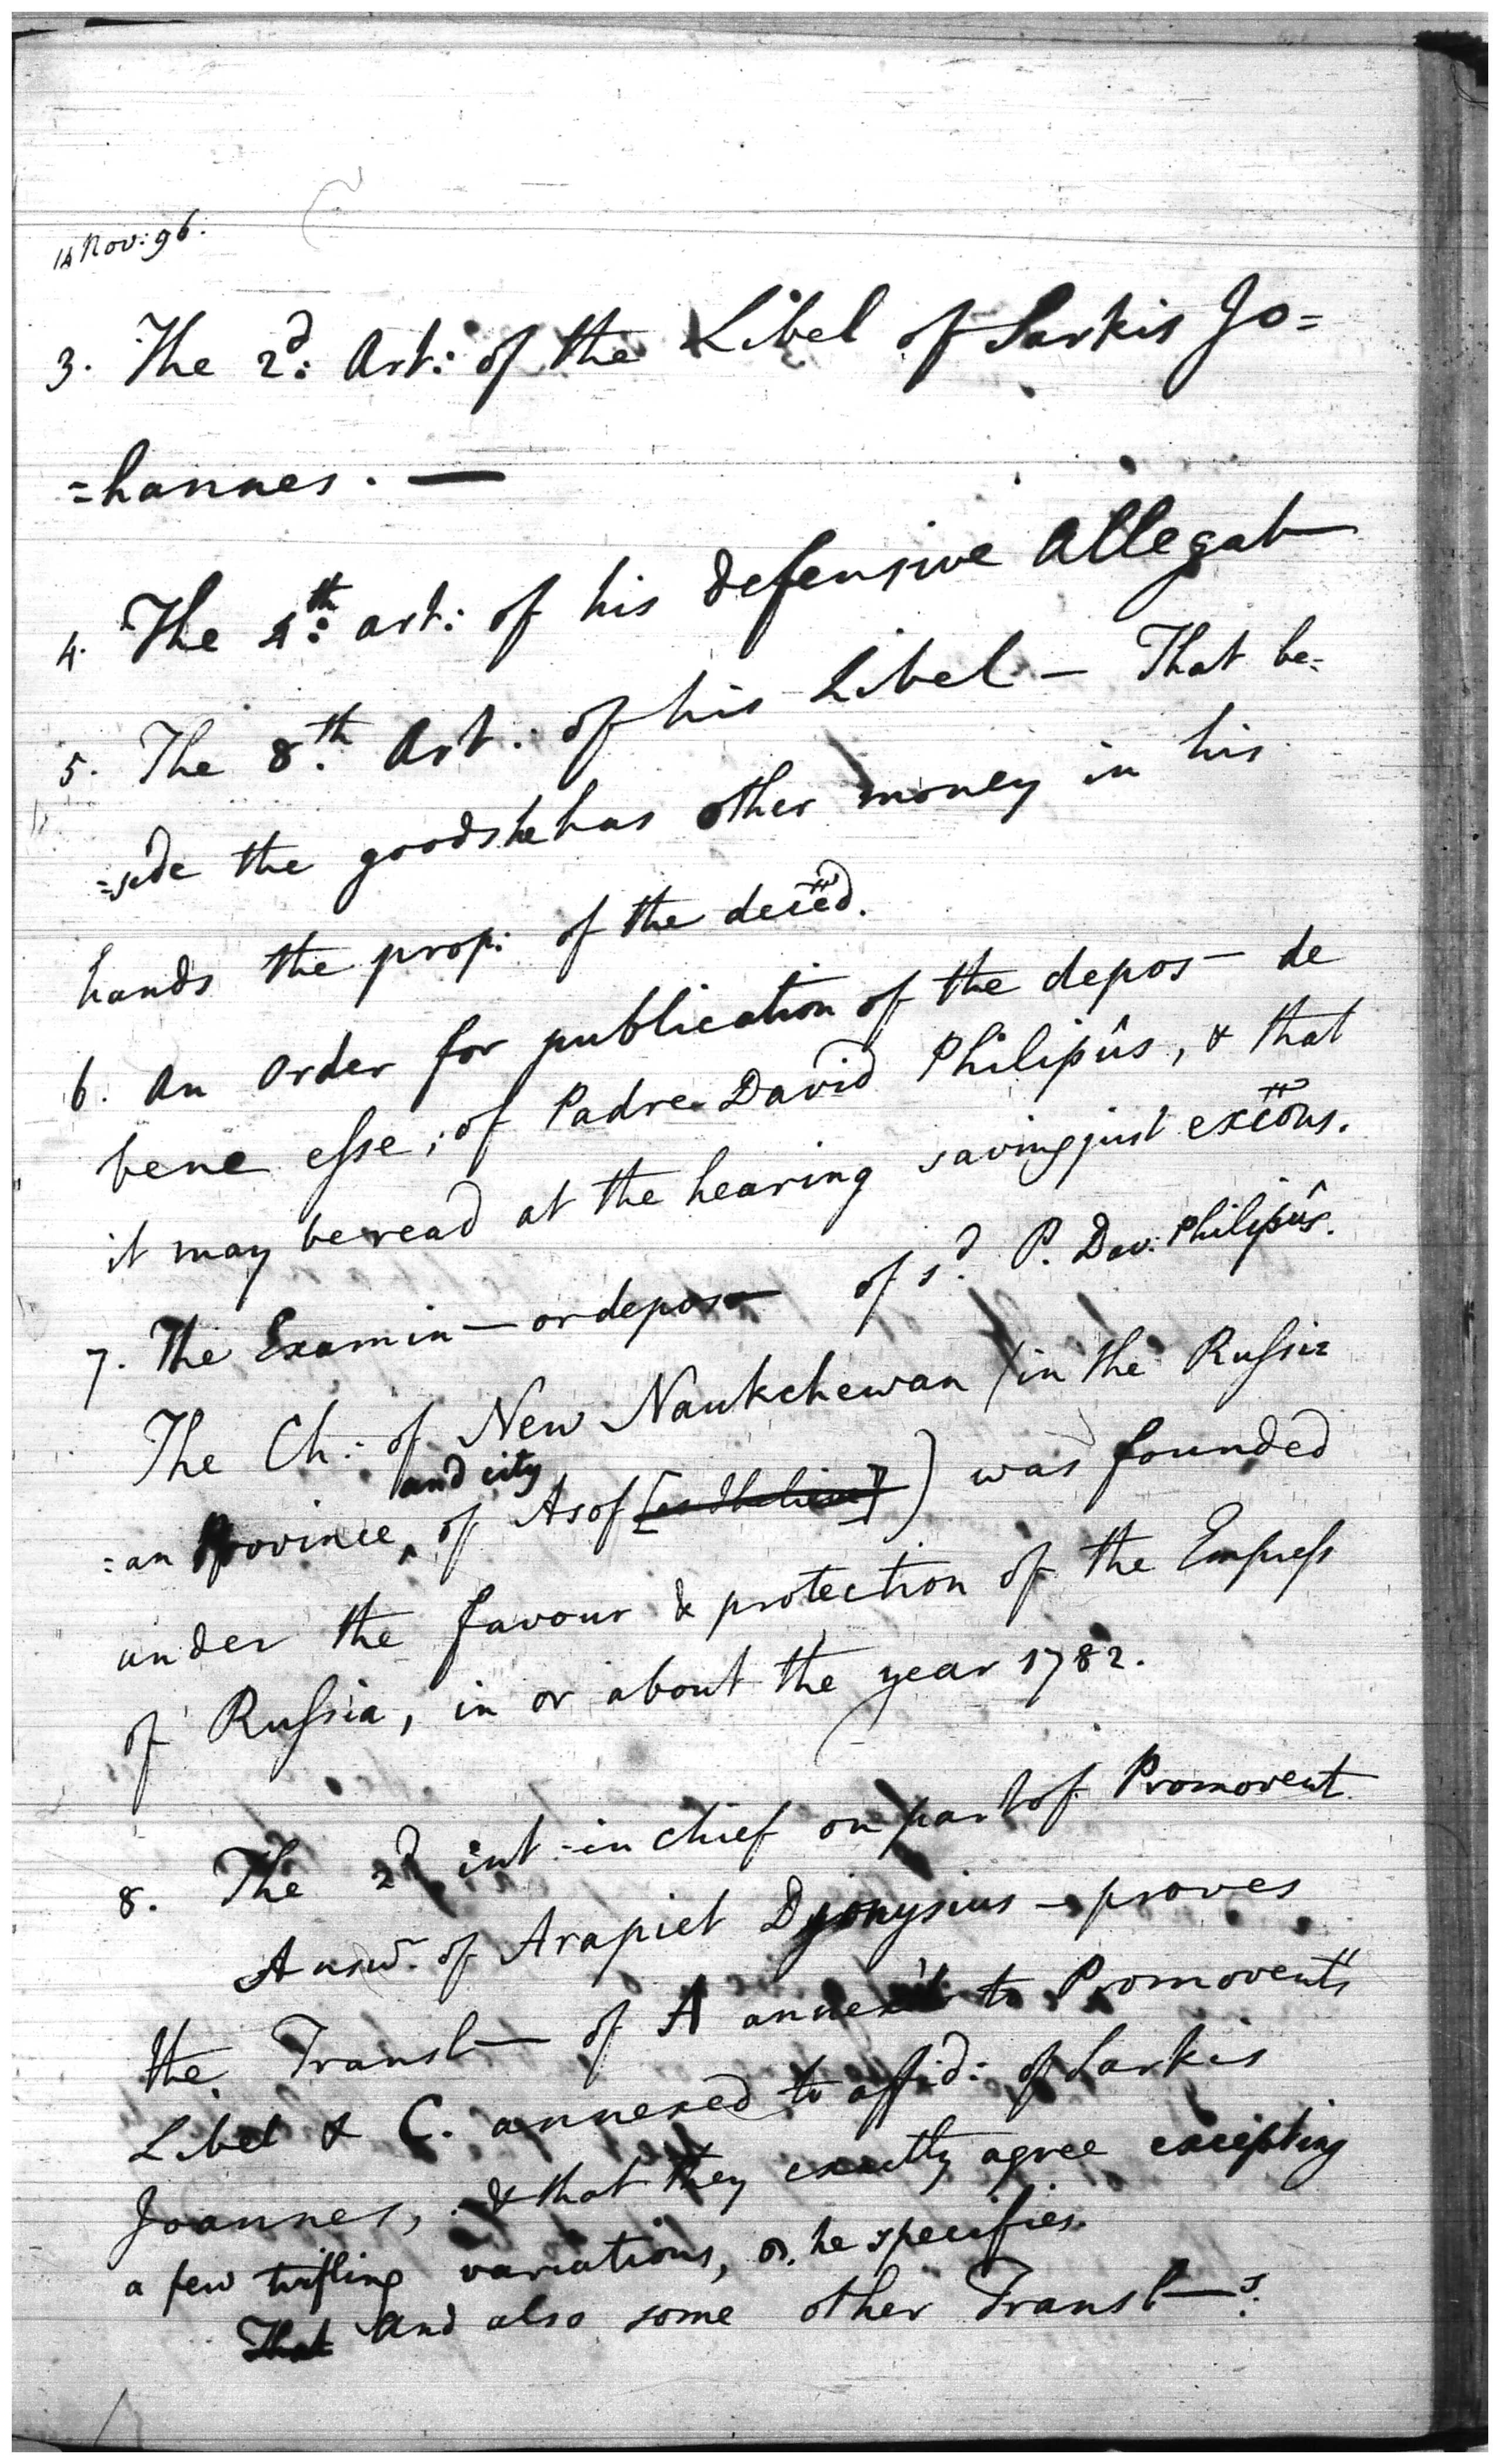 14 Nov: 96.
3. The 2d: Art: of the Libel of Sarkis Jo=
=hannes. —
4. The 4th: art: of his defensive Allegat—
5. The 8th: Art: of his Libel — That be=
=side the goods he has other money in his
hands the prop: of the deced.
6. An Order for publication of the depos— de
bene esse; of Padre David Philipûs, & that
it may be read at the hearing saving just exceons.
7. The Examin— or depos— of sd. P. Dav: Philipûs.
The Ch: of New Naukchewan (in the Russi=
=an Province and city of Asof) was founded
under the favour & protection of the Empress
of Russia, in or about the year 1782.
8. The 2d int: in chief on part of Promovent.
Answ. of Arapiet Dionysius — proves
the Transl— of A annex'd to Promovent's
Libel & C. annexed to affid: of Sarkis
Joannes, & that they exactly agree excepting
a few trifling variations, as he specifies.
That And also some other Transl—s.